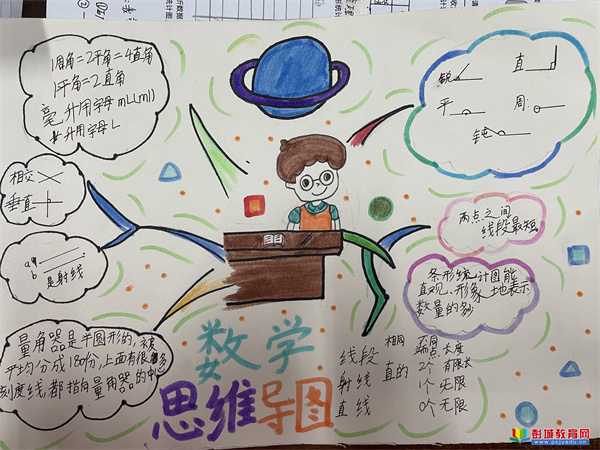 1周角=2平角=4直角
1平角=2直角
毫升用字母mL(ml)
升用字母L
锐
直
平
周:
钝
相交
垂直
a
b
是射线
两点之间
线段最短
条形统计图能
直观、形象地表示
数量的多少
量角器是半圆形的,被
平均分成180份,上面有很多
刻度线,都指向量角器的中心
数学
思维导图
相同 不同
端点 长度
线段 直的 2个 有限长
射线 1个 无限
直线 0个 无限
彭城教育网
www.pcjyedu.cn